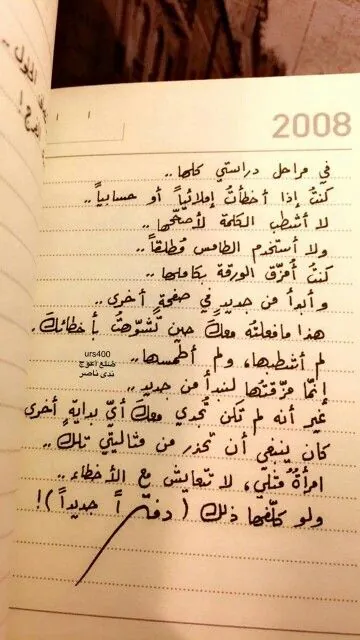 2008
في مراحل دراستي كلها..
كنتُ إذا أخطأتُ إملائياً أو حسابياً..
لا أشطب الكلمة لأصحّحها..
ولا أستخدم الطامس مُطلقاً..
كنتُ أمزّق الورقة بكاملها..
وأبدأ من جديد في صفحةٍ أخرى..
هذا مافعلتُه معكَ حين تشوّهتُ بأخطائكَ.
لم أشطبها، ولم أطمسها..
إنّما مزّقتها لنبدأ من جديد..
غير أنه لم تكن تُجدي معكَ أيّ بدايةٍ أخرى
كان ينبغي أن تحذر من مثاليّتي تلك..
امرأةٌ مثلي، لا تتعايش مع الأخطاء..
ولو كلّفها ذلك (دفتراً جديداً)!
urs400
ضلع أعوج
ندى ناصر